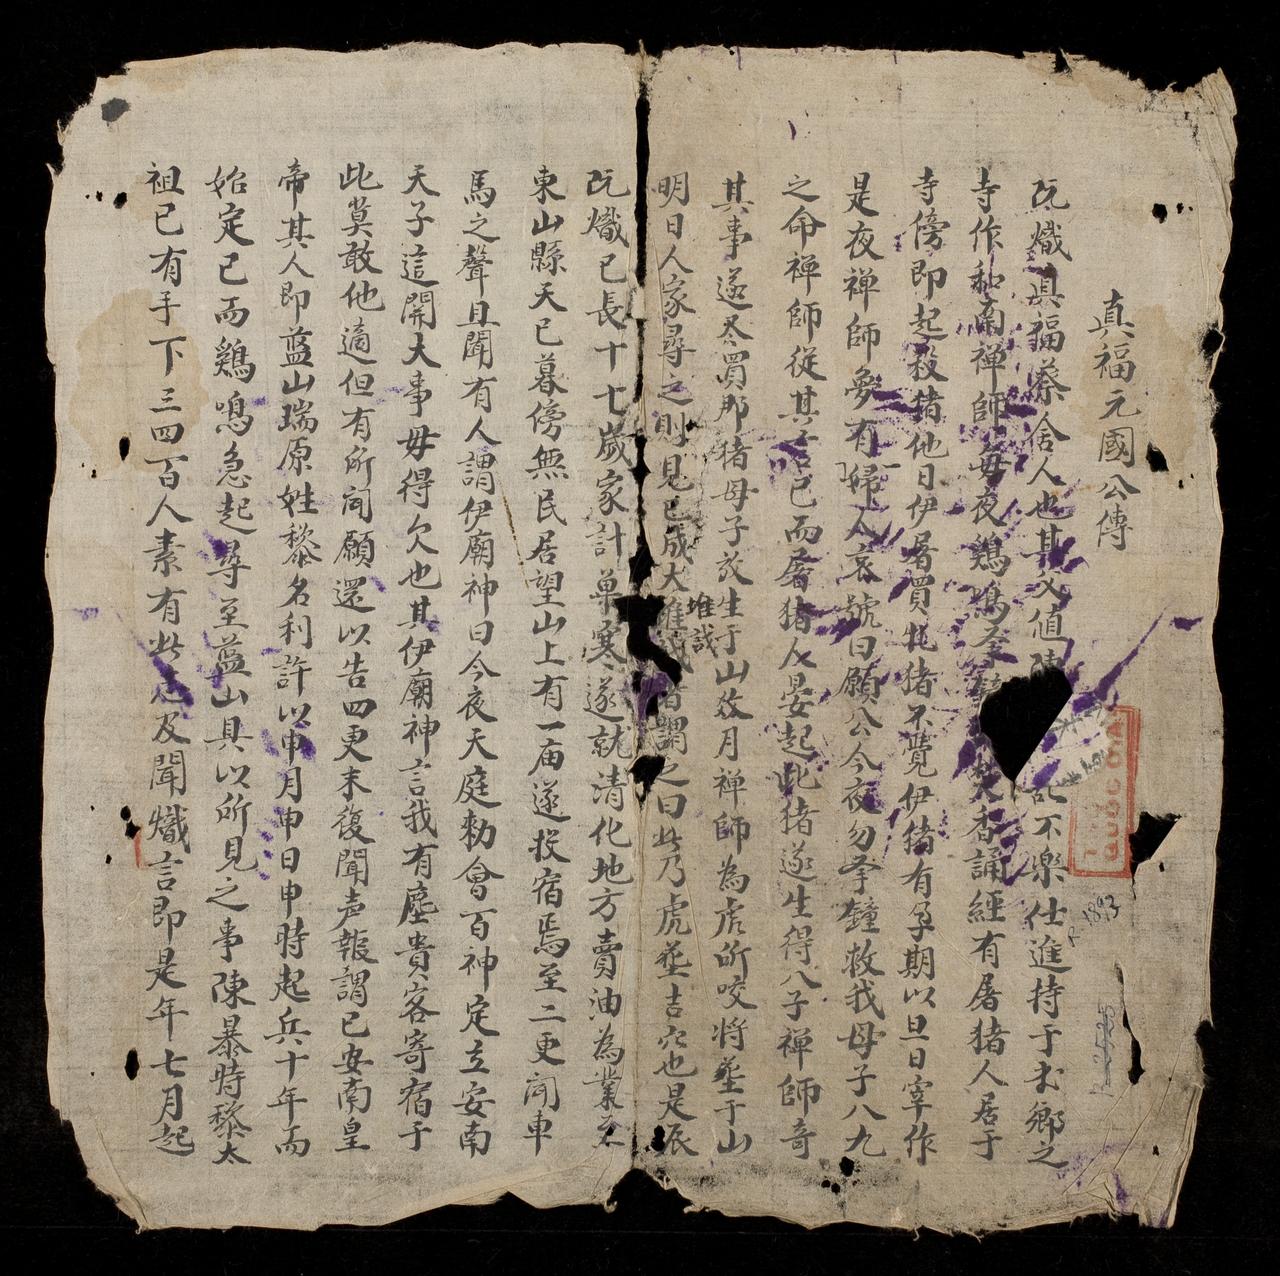 真福元國公傳
阮熾真福蔡舍人也其父值陳 不樂仕進持于本鄉之
寺作和南禅師每夜鷄鳴 焚香誦經有屠猪人居于
寺傍即起殺猪他日伊屠買牝猪不覺伊猪有孕期以旦日宰作
是夜禅師夢有婦人哀號曰願公今夜勿爭鐘救我母子八九
之命禅師從其言已而屠猪人晏起此猪遂生得八子禅師奇
其事遂尽買那猪母子放生于山後月禅師為虎所咬將塟于山
明日人家尋之則見已成大堆 者謂之曰此乃虎塟吉穴也是辰
堆
阮熾已長十七歲家計单寒遂就清化地方賣油為業至
東山縣天已暮傍無民居望山上有一庙遂投宿焉至二更闻車
馬之聲且聞有人謂伊廟神曰今夜天庭勅會百神定立安南
天子這開大事毋得欠也其伊廟神言我有塵貴客寄宿于
此莫敢他適但有所闻願還以告四更末復聞声報謂已安南皇
帝其人即藍山瑞原姓黎名利許以申月申日申時起兵十年而
始定已而鷄鳴急起尋至藍山具以所見之事陳暴時黎太
祖已有手下三四百人素有此 及聞熾言即是年七月起
1893